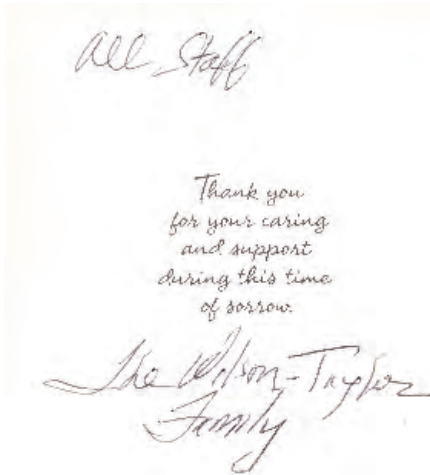 All Staff
Thank you
for your caring
and support
during this time
of sorrow.
The Wilson-Taylor
Family